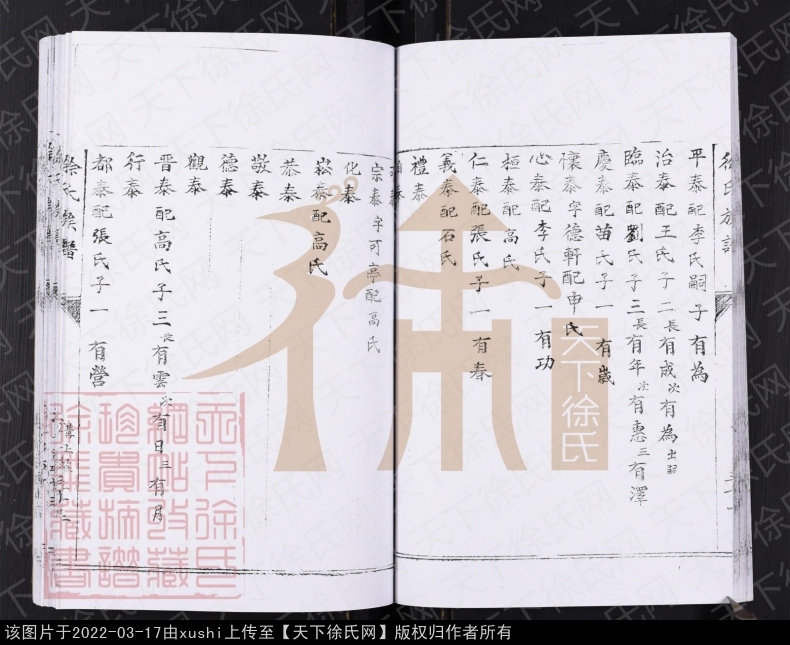 徐氏族譜
平泰配李氏嗣子有為
治泰配王氏子二長有成次有為出嗣
臨泰配劉氏子三長有年次有惠三有澤
慶泰配苗氏子一有歲
懷泰字德軒配申氏
心泰配李氏子一有功
桓泰配高氏
仁泰配張氏子一有春
義泰配石氏
禮泰
宗泰字可亭配高氏
化泰
崧泰配高氏
恭泰
敬泰
德泰
觀泰
晋泰配高氏子三長有雲次有日三有月
行泰
都泰配張氏子一有營
徐氏族譜
天下徐氏
天下徐氏网
该图片于2022-03-17由xushi上传至【天下徐氏网】版权归作者所有